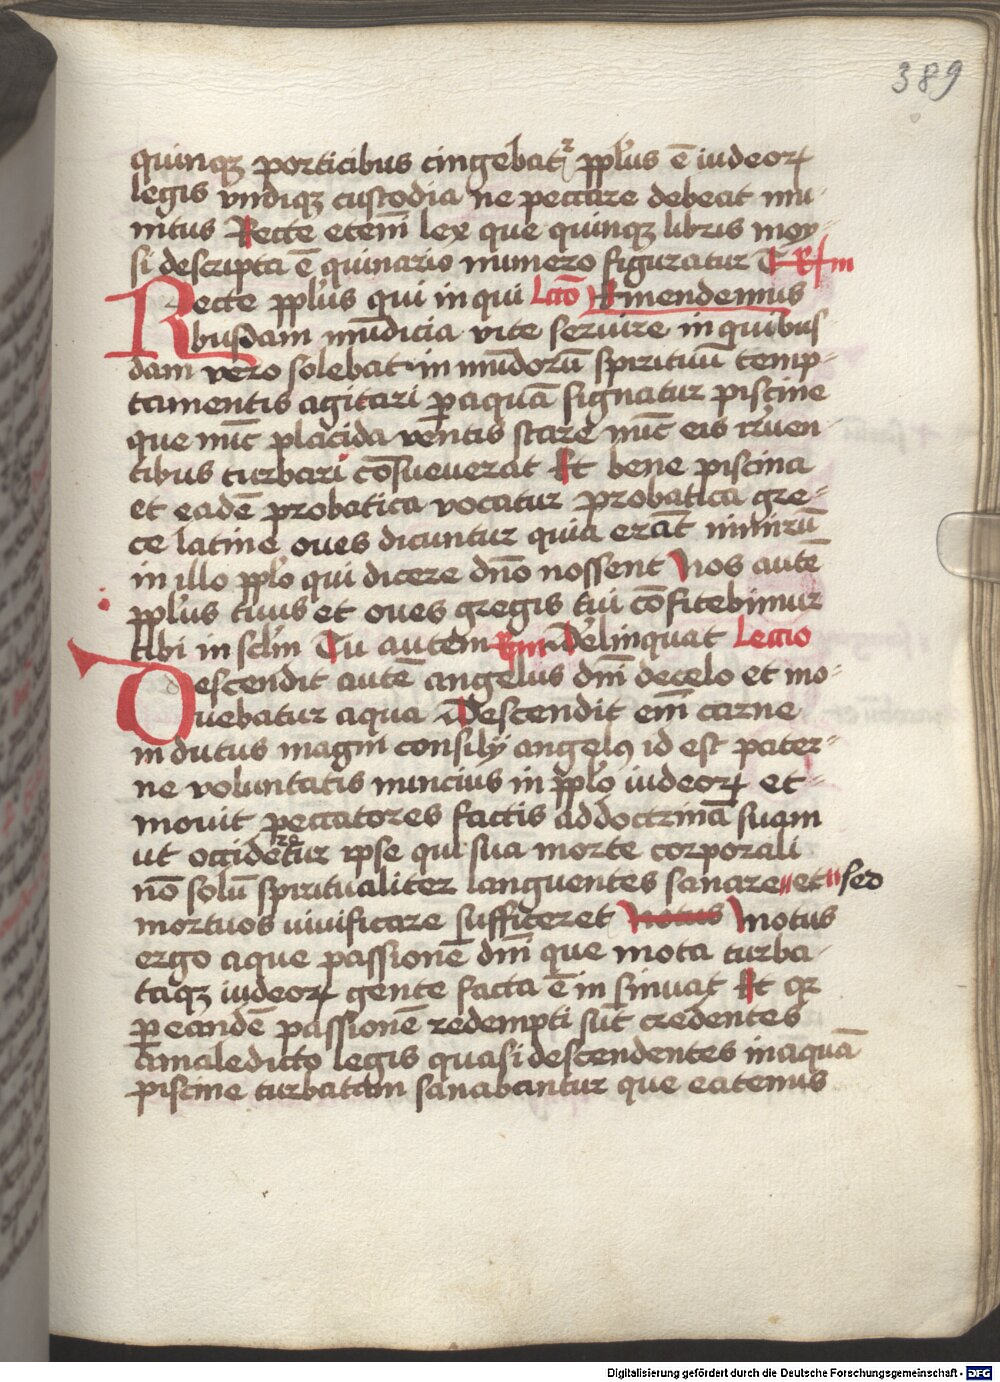 389
quinqꝫ porticibus cingebatᷣ pplus ē iudeoꝝ
legis vndiqꝫ custodia ne peccare debeat mu
nitus Recte etenī lex que quinqꝫ libris moy
si descripta ē quinario numero figuratur T Rm
Recte pplus qui in qui Lctō Emendemus
busdam mūdicia vite seruire in quibus
dam vero solebat in mūdorū spirituū temp
tamentis agitari ꝑ aquā signatur piscine
que nūc placida ventis stare nūc eis irruen
tibus turbari cōsueuerat Et bene piscina
et eadē probatica vocatur probatica gre
ce latine oues dicuntur quia erāt nimirū
in illo pplo qui dicere dño nossent Nos autē
pplus tuus et oues gregis tui cōfitebimur
tibi in sclm Tu autem Rm Delinquat Lectio
Descendit autē angelus dñi de celo et mo
uebatur aqua Descendit em̄ carne
indutus magni consilij angelꝰ id est pater
ne voluntatis nuncius in pplo iudeoꝝ et
mouit peccatores factis ad doctrinā suam
ut occideretur ipse qui sua morte corporali
nō solū spiritualiter languentes sanare et sed
mortuos uiuificare sufficeret Motus Motus
ergo aque passionē dñi que mota turba
taqꝫ iudeoꝝ gente facta ē in sinuat Et qꝛ
ꝑ eandē passionē redempti sūt credentes
a maledicto legis quasi descendentes in aquā
piscine turbatam sanabantur que eatenus
Digitalisierung gefördert durch die Deutsche Forschungsgemeinschaft - DFG